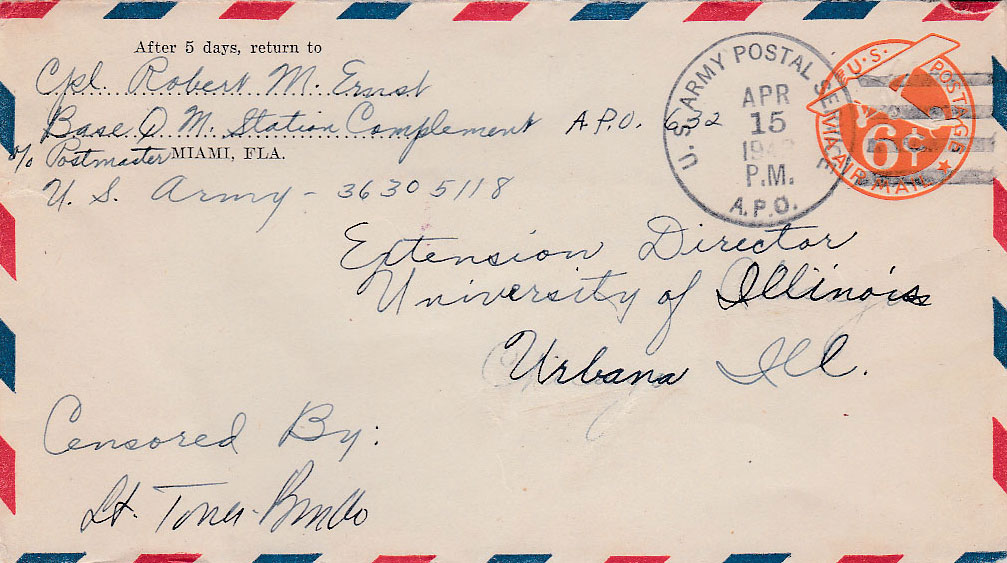 After 5 days, return to
Cpl. Robert M. Ernst
Base Q M. Station Complement A.P.O. 632
% Postmaster MIAMI, FLA.
U. S. Army - 36305118
U.S. ARMY POSTAL SERVICE
APR
15
P.M.
A.P.O.
U.S. POSTAGE
6¢
VIA AIR MAIL
Extension Director
University of Illinois
Urbana Ill.
Censored By:
Lt.